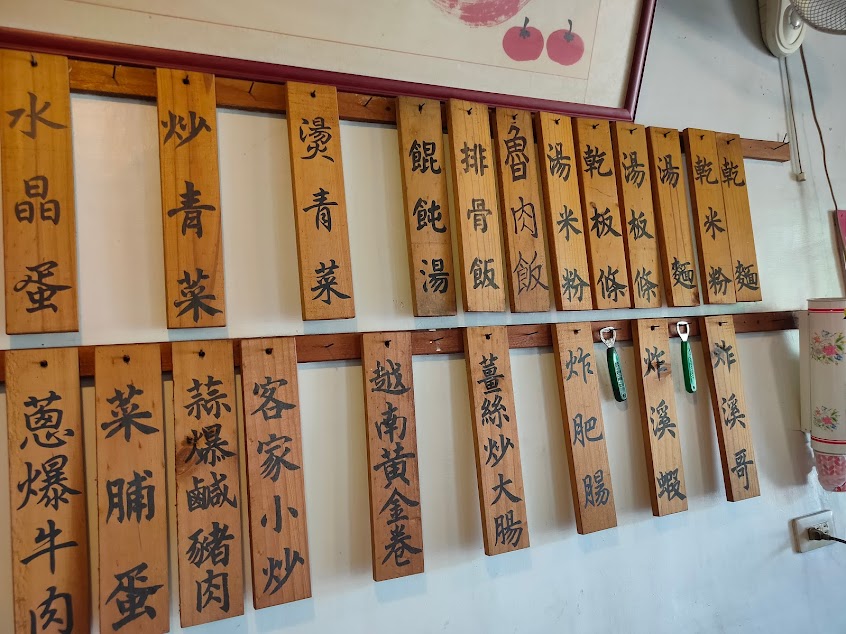 水晶蛋
炒青菜
燙青菜
餛飩湯
排骨飯
魯肉飯
湯米粉
乾板條
湯板條
湯麵
乾米粉
乾麵
蔥爆牛肉
菜脯蛋
蒜爆鹹豬肉
客家小炒
越南黃金卷
薑絲炒大腸
炸肥腸
炸溪蝦
炸溪哥